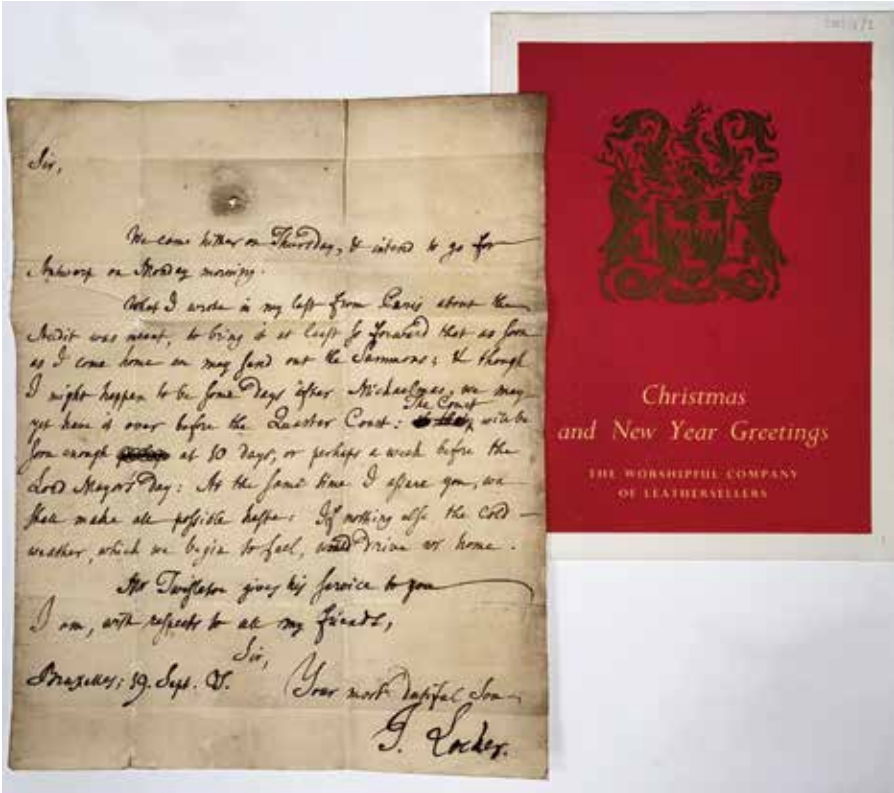 Sir,
We came hither on Thursday, & intend to go for
Antwerp on Monday morning.
What I wrote in my last from Paris about the
Audit was meant, to bring it at least so forward that as soon
as I come home we may send out the Summons; & though
I might happen to be some Days after Michaelmas, we may
yet have it over before the Quarter Court: The Court will be
soon enough at 10 days, or perhaps a week before the
Lord Mayor's Day: At the same time I assure you, we
shall make all possible haste: If nothing else the cold
weather, which we begin to feel, would drive us home.
Mr Twisleton gives his service to you
I am, with respects to all my friends,
Sir,
Bruxelles; 19. Sept.
Your most dutiful Son
J. Locker.
Christmas
and New Year Greetings
THE WORSHIPFUL COMPANY
OF LEATHERSELLERS